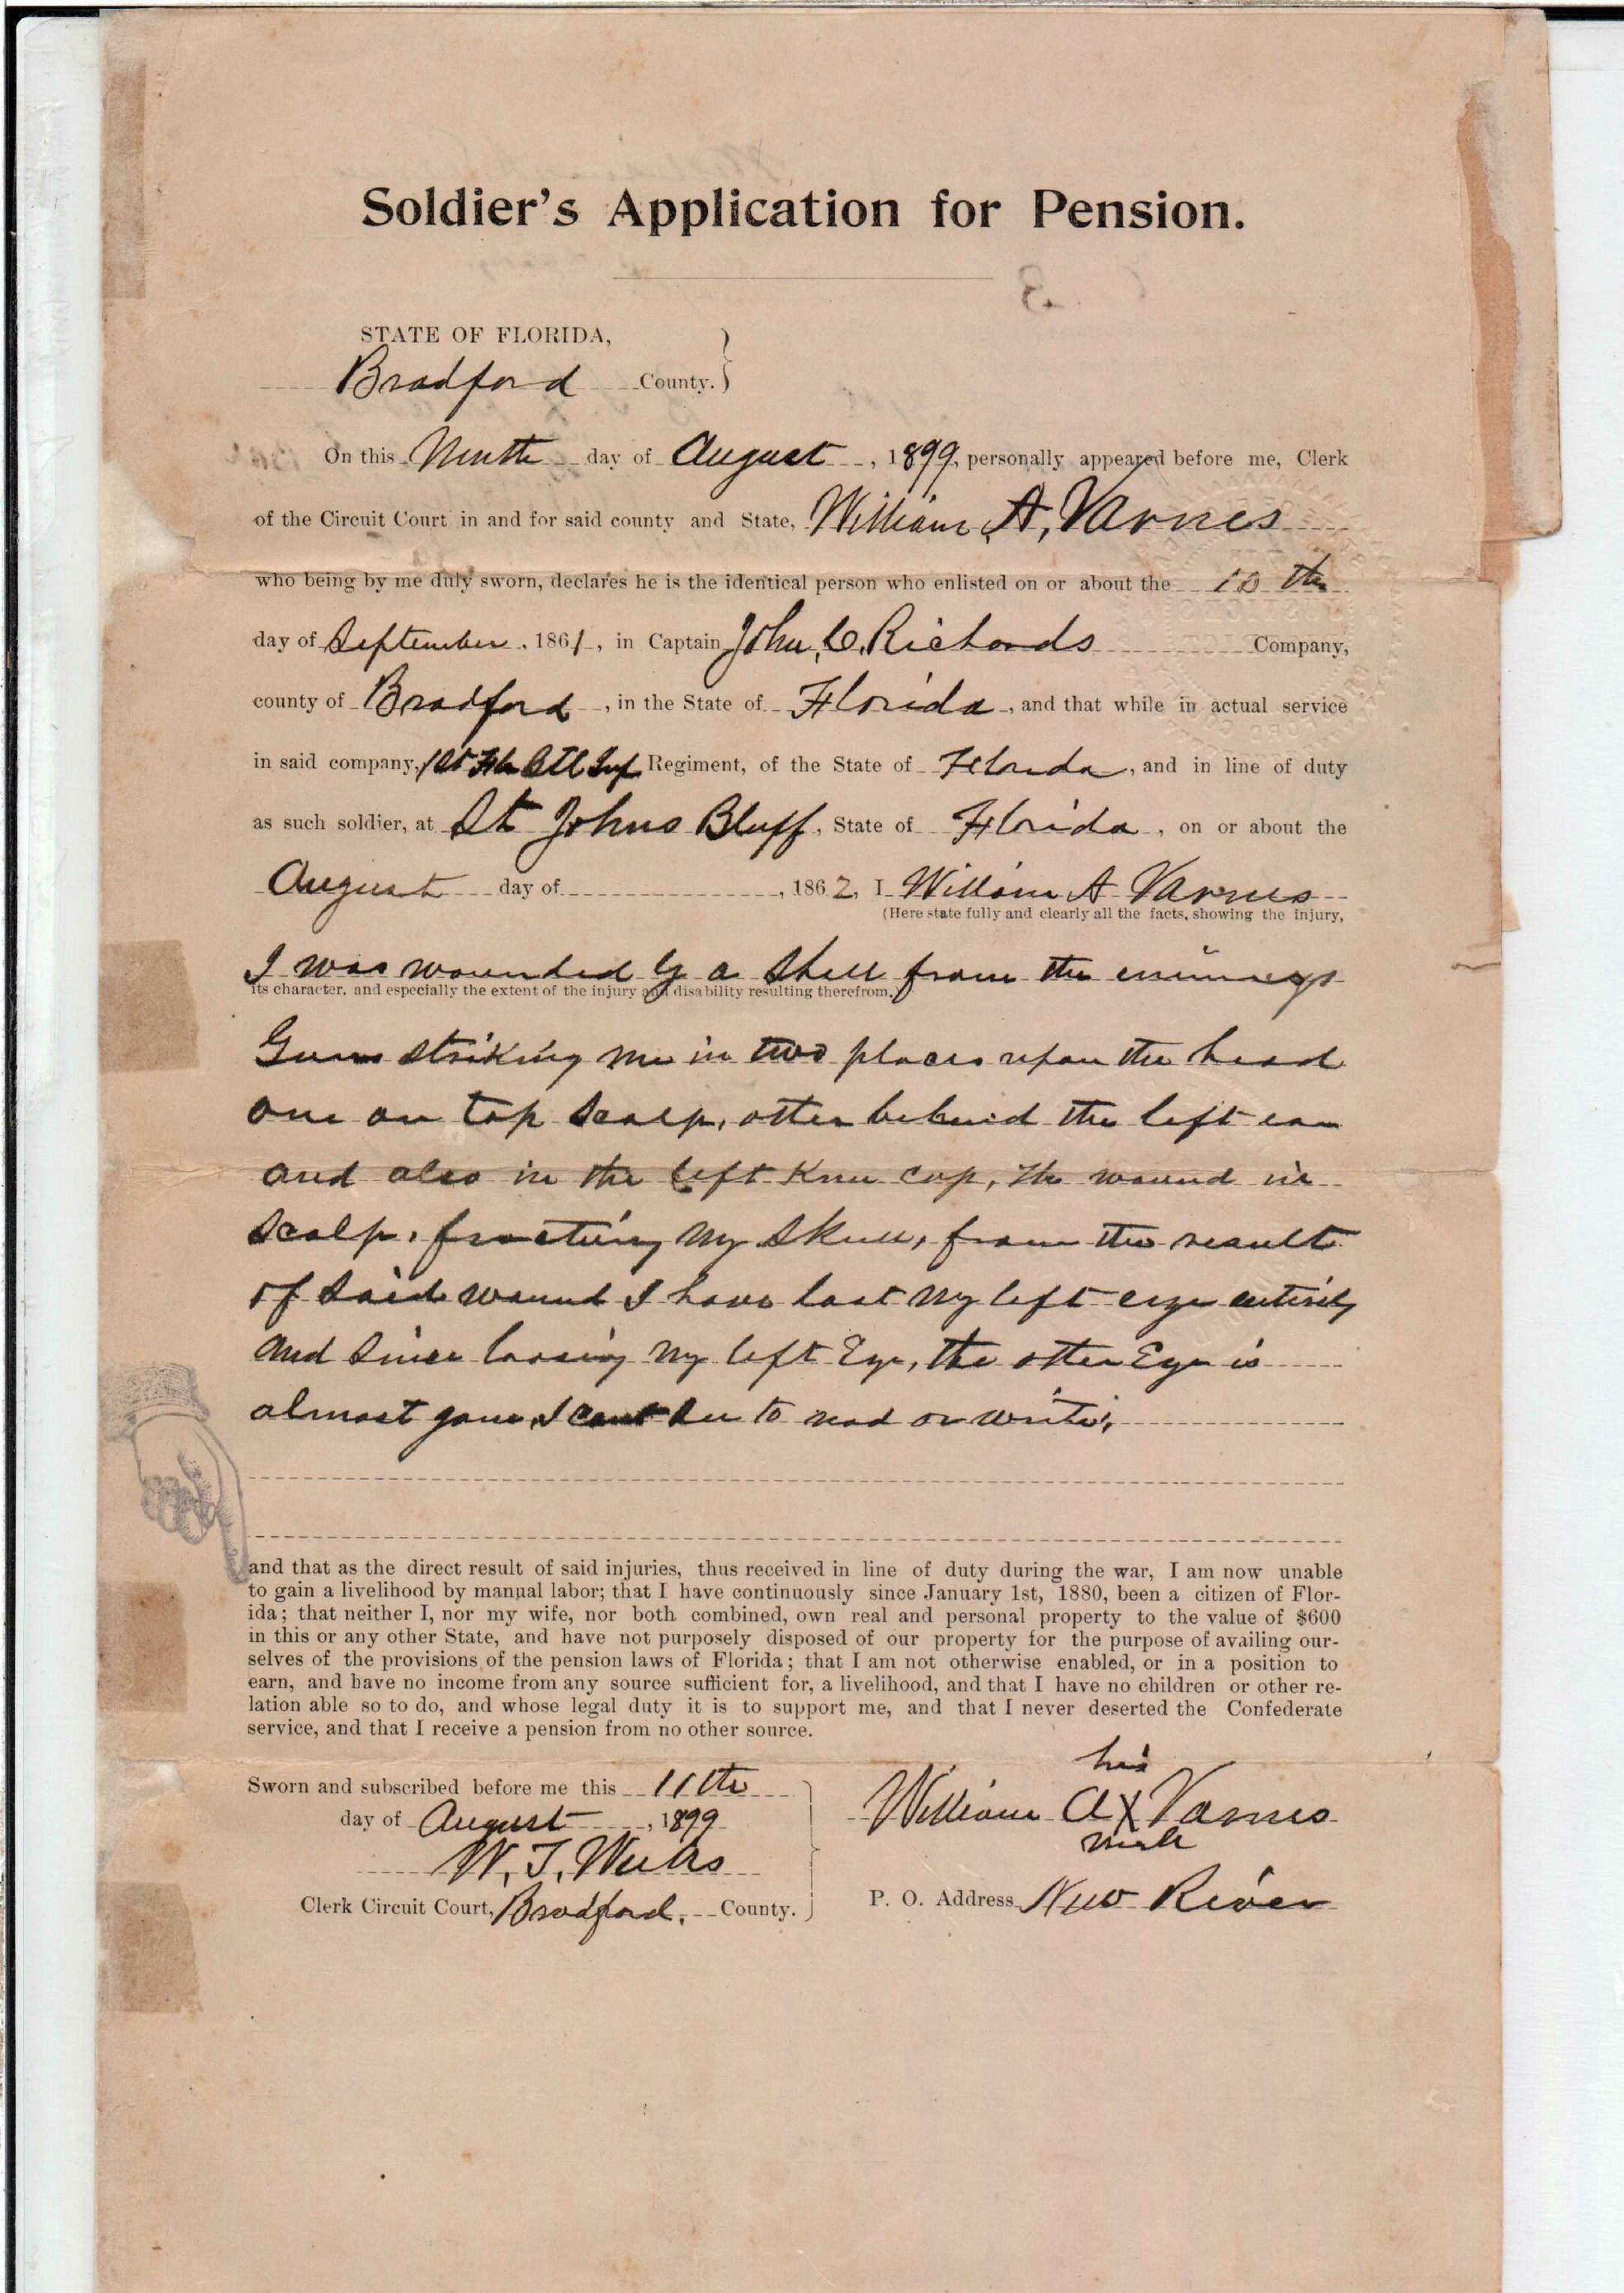 Soldier's Application for Pension.
STATE OF FLORIDA,
Bradford County.
On this Ninth day of August, 1899, personally appeared before me, Clerk
of the Circuit Court in and for said county and State, William, A, Varnes
who being by me duly sworn, declares he is the identical person who enlisted on or about the 10 th
day of September, 1861, in Captain John, C, Richards Company,
county of Bradford, in the State of Florida, and that while in actual service
in said company, 1st Fla Inf Regiment, of the State of Florida, and in line of duty
as such soldier, at St Johns Bluff, State of Florida, on or about the
August day of , 1862, I William A Varnes
(Here state fully and clearly all the facts, showing the injury,
I was wounded by a Shell from the enimeys
its character, and especially the extent of the injury and disability resulting therefrom.)
Guns striking me in two places upon the head
one on top scalp, other behind the left ear
and also in the left Knee cap, the wound in
scalp, fracturing My Skull, from the result
of Said wound I have lost My left eye entirely
and Since loosing My left Eye, the other Eye is
almost gone, I cant See to read or write,
and that as the direct result of said injuries, thus received in line of duty during the war, I am now unable
to gain a livelihood by manual labor; that I have continuously since January 1st, 1880, been a citizen of Flor-
ida; that neither I, nor my wife, nor both combined, own real and personal property to the value of $600
in this or any other State, and have not purposely disposed of our property for the purpose of availing our-
selves of the provisions of the pension laws of Florida; that I am not otherwise enabled, or in a position to
earn, and have no income from any source sufficient for, a livelihood, and that I have no children or other re-
lation able so to do, and whose legal duty it is to support me, and that I never deserted the Confederate
service, and that I receive a pension from no other source.
his
Sworn and subscribed before me this 11th
William A X Varnes
day of August, 1899
mark
W. T. Weeks
Clerk Circuit Court, Bradford, County.
P. O. Address New River